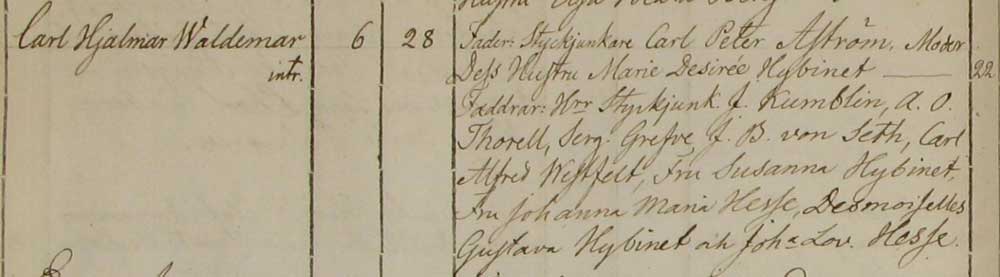 Carl Hjalmar Waldemar 6 28 Fader: Styckjunkare Carl Peter Aström. Moder
intr. Dess Hustru Marie Desirée Hybinet — 22
Faddrar: Hrr Styckjunk. J. Kumblin, A. O.
Thorell, Serg. Grefve J. B. von Seth, Carl
Alfred Westfelt, Fru Susanna Hybinet,
Fru Johanna Maria Hesse, Desmoiselles
Gustava Hybinet och Joha Lov. Hesse.